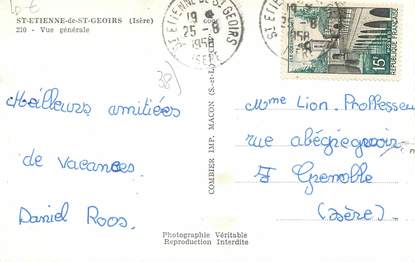 ST-ETIENNE-de-ST-GEOIRS (Isère)
210 - Vue générale
ST ETIENNE-DE-ST-GEOIRS
19 H
25 - 8
1958
(ISERE)
15F
38)
Meilleurs amitiées
de vacances.
Daniel Roos.
COMBIER IMP. MACON (S.-et-L.)
Photographie Véritable
Reproduction Interdite
Mme Lion. Professeur
rue
Grenoble
(Isère)